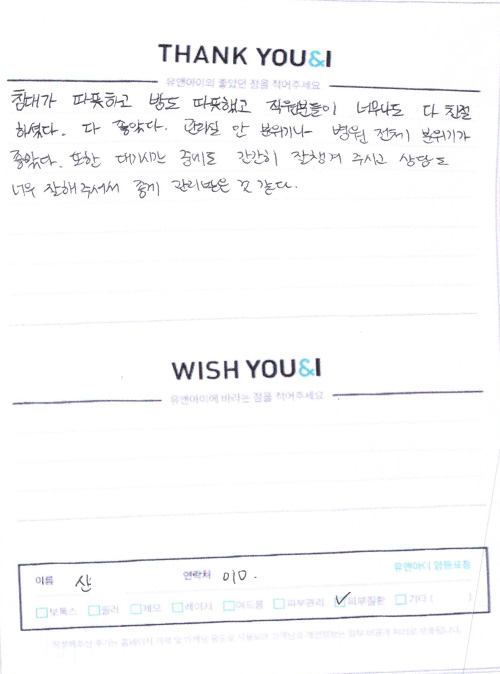 THANK YOU&I
유앤아이의 좋았던 점을 적어주세요
침대가 따뜻하고 방도 따뜻했고 직원분들이 너무나도 다 친절
하셨다. 다 좋았다. 관리실 안 분위기나 병원 전체 분위기가
좋았다. 또한 대기시간 중에도 간간히 잘챙겨 주시고 상담도
너무 잘해주셔서 좋게 관리받은 것 같다.
WISH YOU&I
유앤아이에 바라는 점을 적어주세요
이름 산 연락처 010.
보톡스 필러 제모 레이저 여드름 피부관리 피부질환 기타 ( )